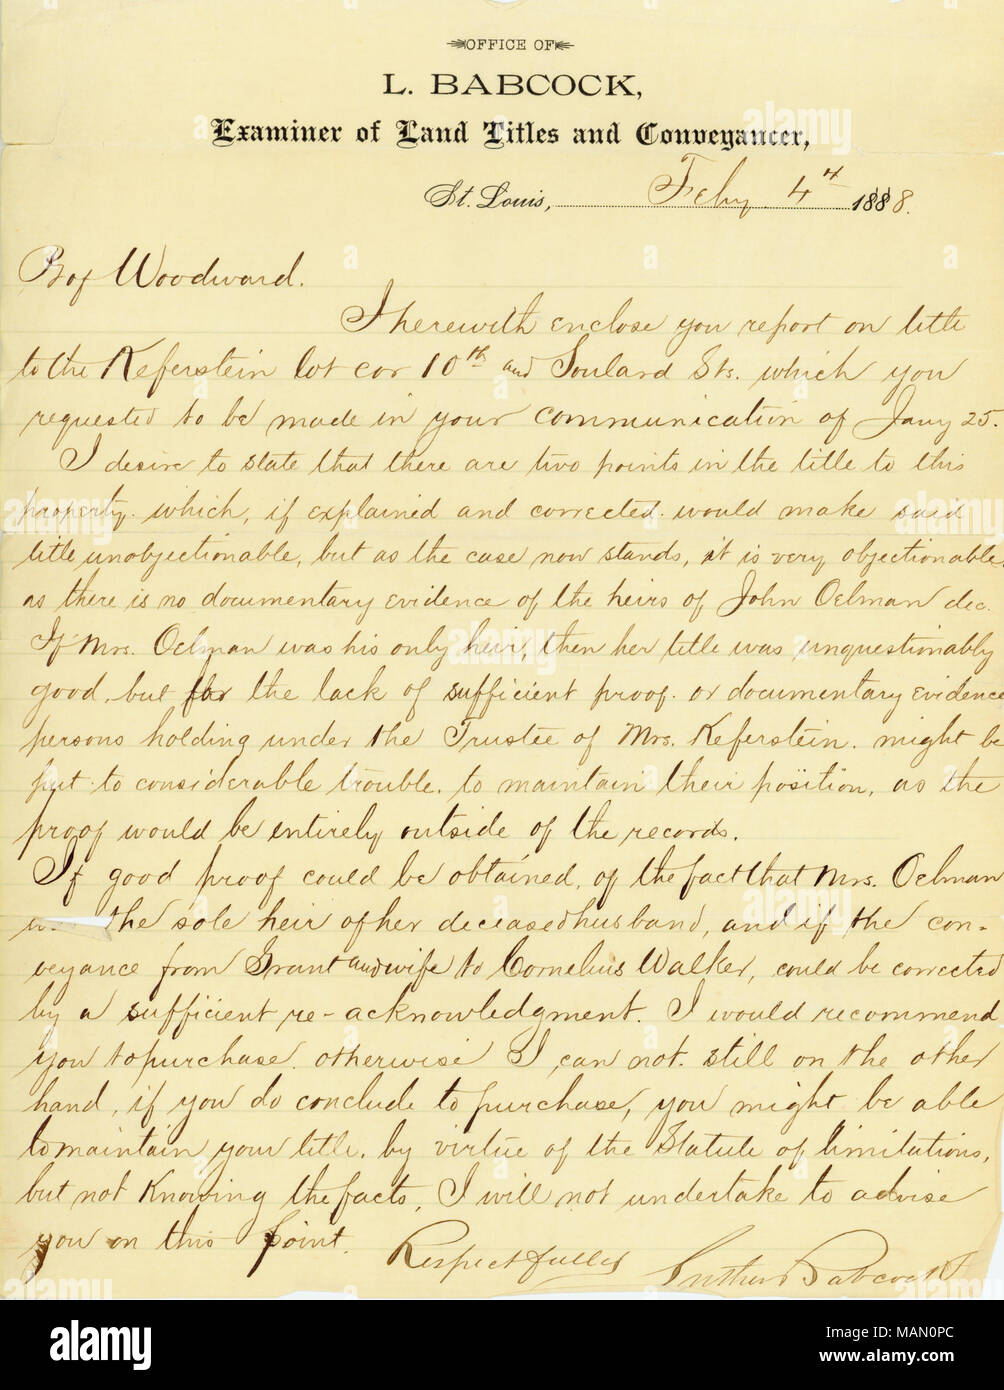 OFFICE OF
L. BABCOCK,
Examiner of Land Titles and Conveyancer,
St. Louis, Feby. 4th 1888.
Prof Woodward.
I herewith enclose you report on title
to the Keferstein lot cor 10th and Soulard Sts. which you
requested to be made in your communication of Jany 25.
I desire to state that there are two points in the title to this
property. which, if explained and corrected. would make said
title unobjectionable, but as the case now stands, it is very objectionable.
as there is no documentary evidence of the heirs of John Oelman dec.
If Mrs. Oelman was his only heir, then her title was unquestionably
good, but for the lack of sufficient proof. or documentary evidence
persons holding under the Trustee of Mrs. Keferstein. might be
put to considerable trouble. to maintain their position, as the
proof would be entirely outside of the records.
If good proof could be obtained, of the fact that Mrs. Oelman
the sole heir of her deceased husband, and if the con-
veyance from Grant and wife to Cornelius Walker, could be corrected
by a sufficient re-acknowledgment. I would recommend
you to purchase. otherwise I can not. still on the other
hand, if you do conclude to purchase, you might be able
to maintain your title. by virtue of the Statute of limitations,
but not knowing the facts, I will not undertake to advise
you on this point.
Respectfully Luther Babcock
alamy
Image ID: MAN0PC
www.alamy.com